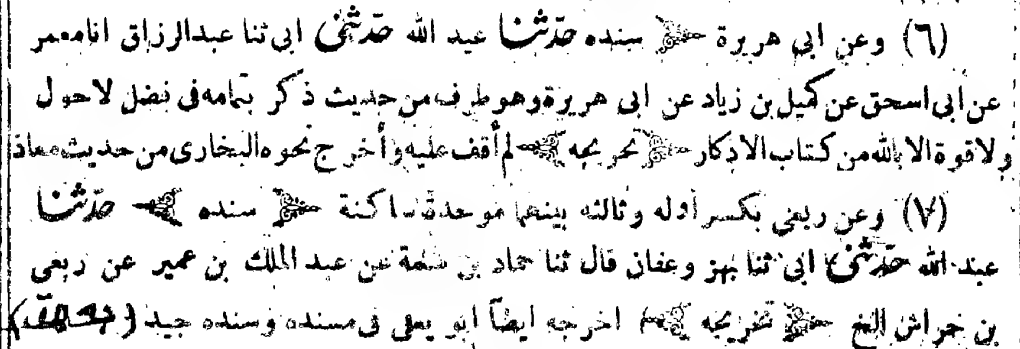 (٦) وعن ابي هريرة ﴿ سنده حدثنا عبد الله حدثني ابي ثنا عبدالرزاق انا معمر
عن أبى اسحق عن كميل بن زياد عن ابى هريرة وهو طرف من حديث ذكر بتمامه فى فضل لاحول
ولا قوة الا بالله من كتاب الاذكار ﴿ تخريجه ﴾ لم أقف عليه وأخرج نحوه البخارى من حديث معاذ
(٧) وعن ربعى بكسر أوله وثالثه بينهما موحدة ساكنة ﴿ سنده ﴾ حدثنا
عبد الله حدثني ابى ثنا بهز وعفان قال ثنا حماد بن سلمة عن عبد الملك بن عمير عن ربعى
بن خراش الخ ﴿ تخريجه ﴾ اخرجه ايضاً ابو يعلى فى مسنده وسنده جيد